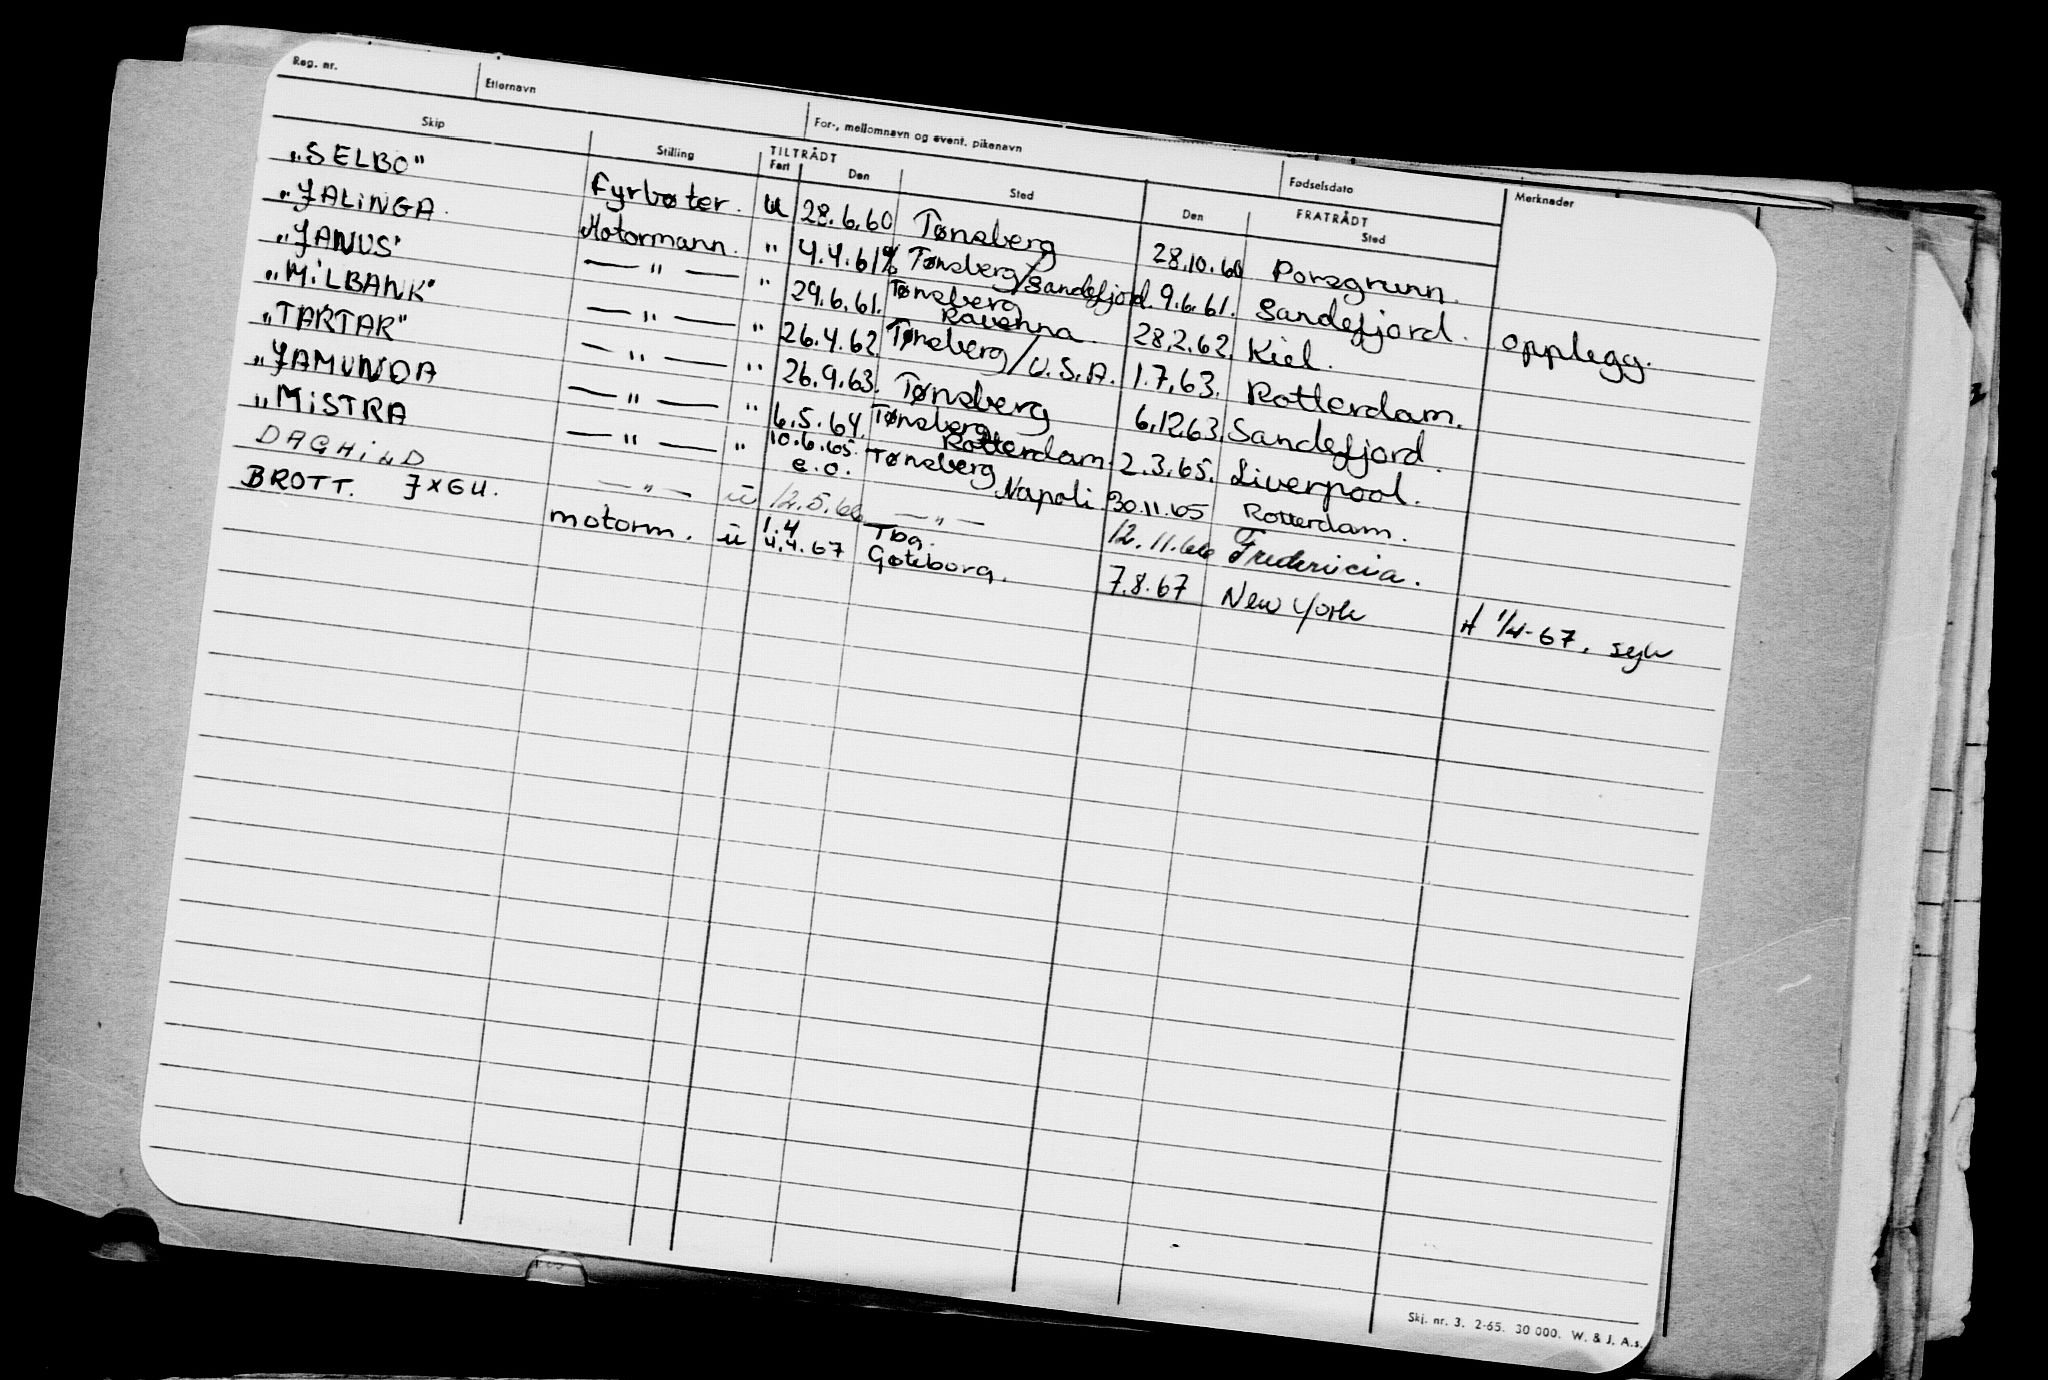 Reg. nr. Etternavn For-, mellomnavn og event. pikenavn Fødselsdato
Skip Stilling TILTRÅDT FRATRÅDT Merknader
Fart Den Sted Den Sted
„SELBO" Fyrbøter. u 28.6.60 Tønsberg 28.10.60 Porsgrunn.
„JALINGA. Motormann. " 4.4.61 Tønsberg/Sandefjord. 9.6.61. Sandefjord. opplegg.
„JANUS" — " — " 29.6.61. Tønsberg Ravenna. 28.2.62. Kiel.
„MILBANK" — " — " 26.4.62. Tønsberg/U.S.A. 1.7.63. Rotterdam.
„TARTAR" — " — " 26.9.63. Tønsberg 6.12.63. Sandefjord.
„JAMUNDA — " — " 6.5.64. Tønsberg Rotterdam. 2.3.65. Liverpool.
„MISTRA — " — " 10.6.65. e.o. Tønsberg Napoli. 30.11.65 Rotterdam.
DAGHILD — " — ü 12.5.66 — " — 12.11.66 Fredericia.
BROTT. JXGU. motorm. ü 1.4 4.4.67 Tbg. Gøteborg. 7.8.67 New York # 1/4-67.
Skj. nr. 3. 2-65. 30 000. W. & J. A.s.